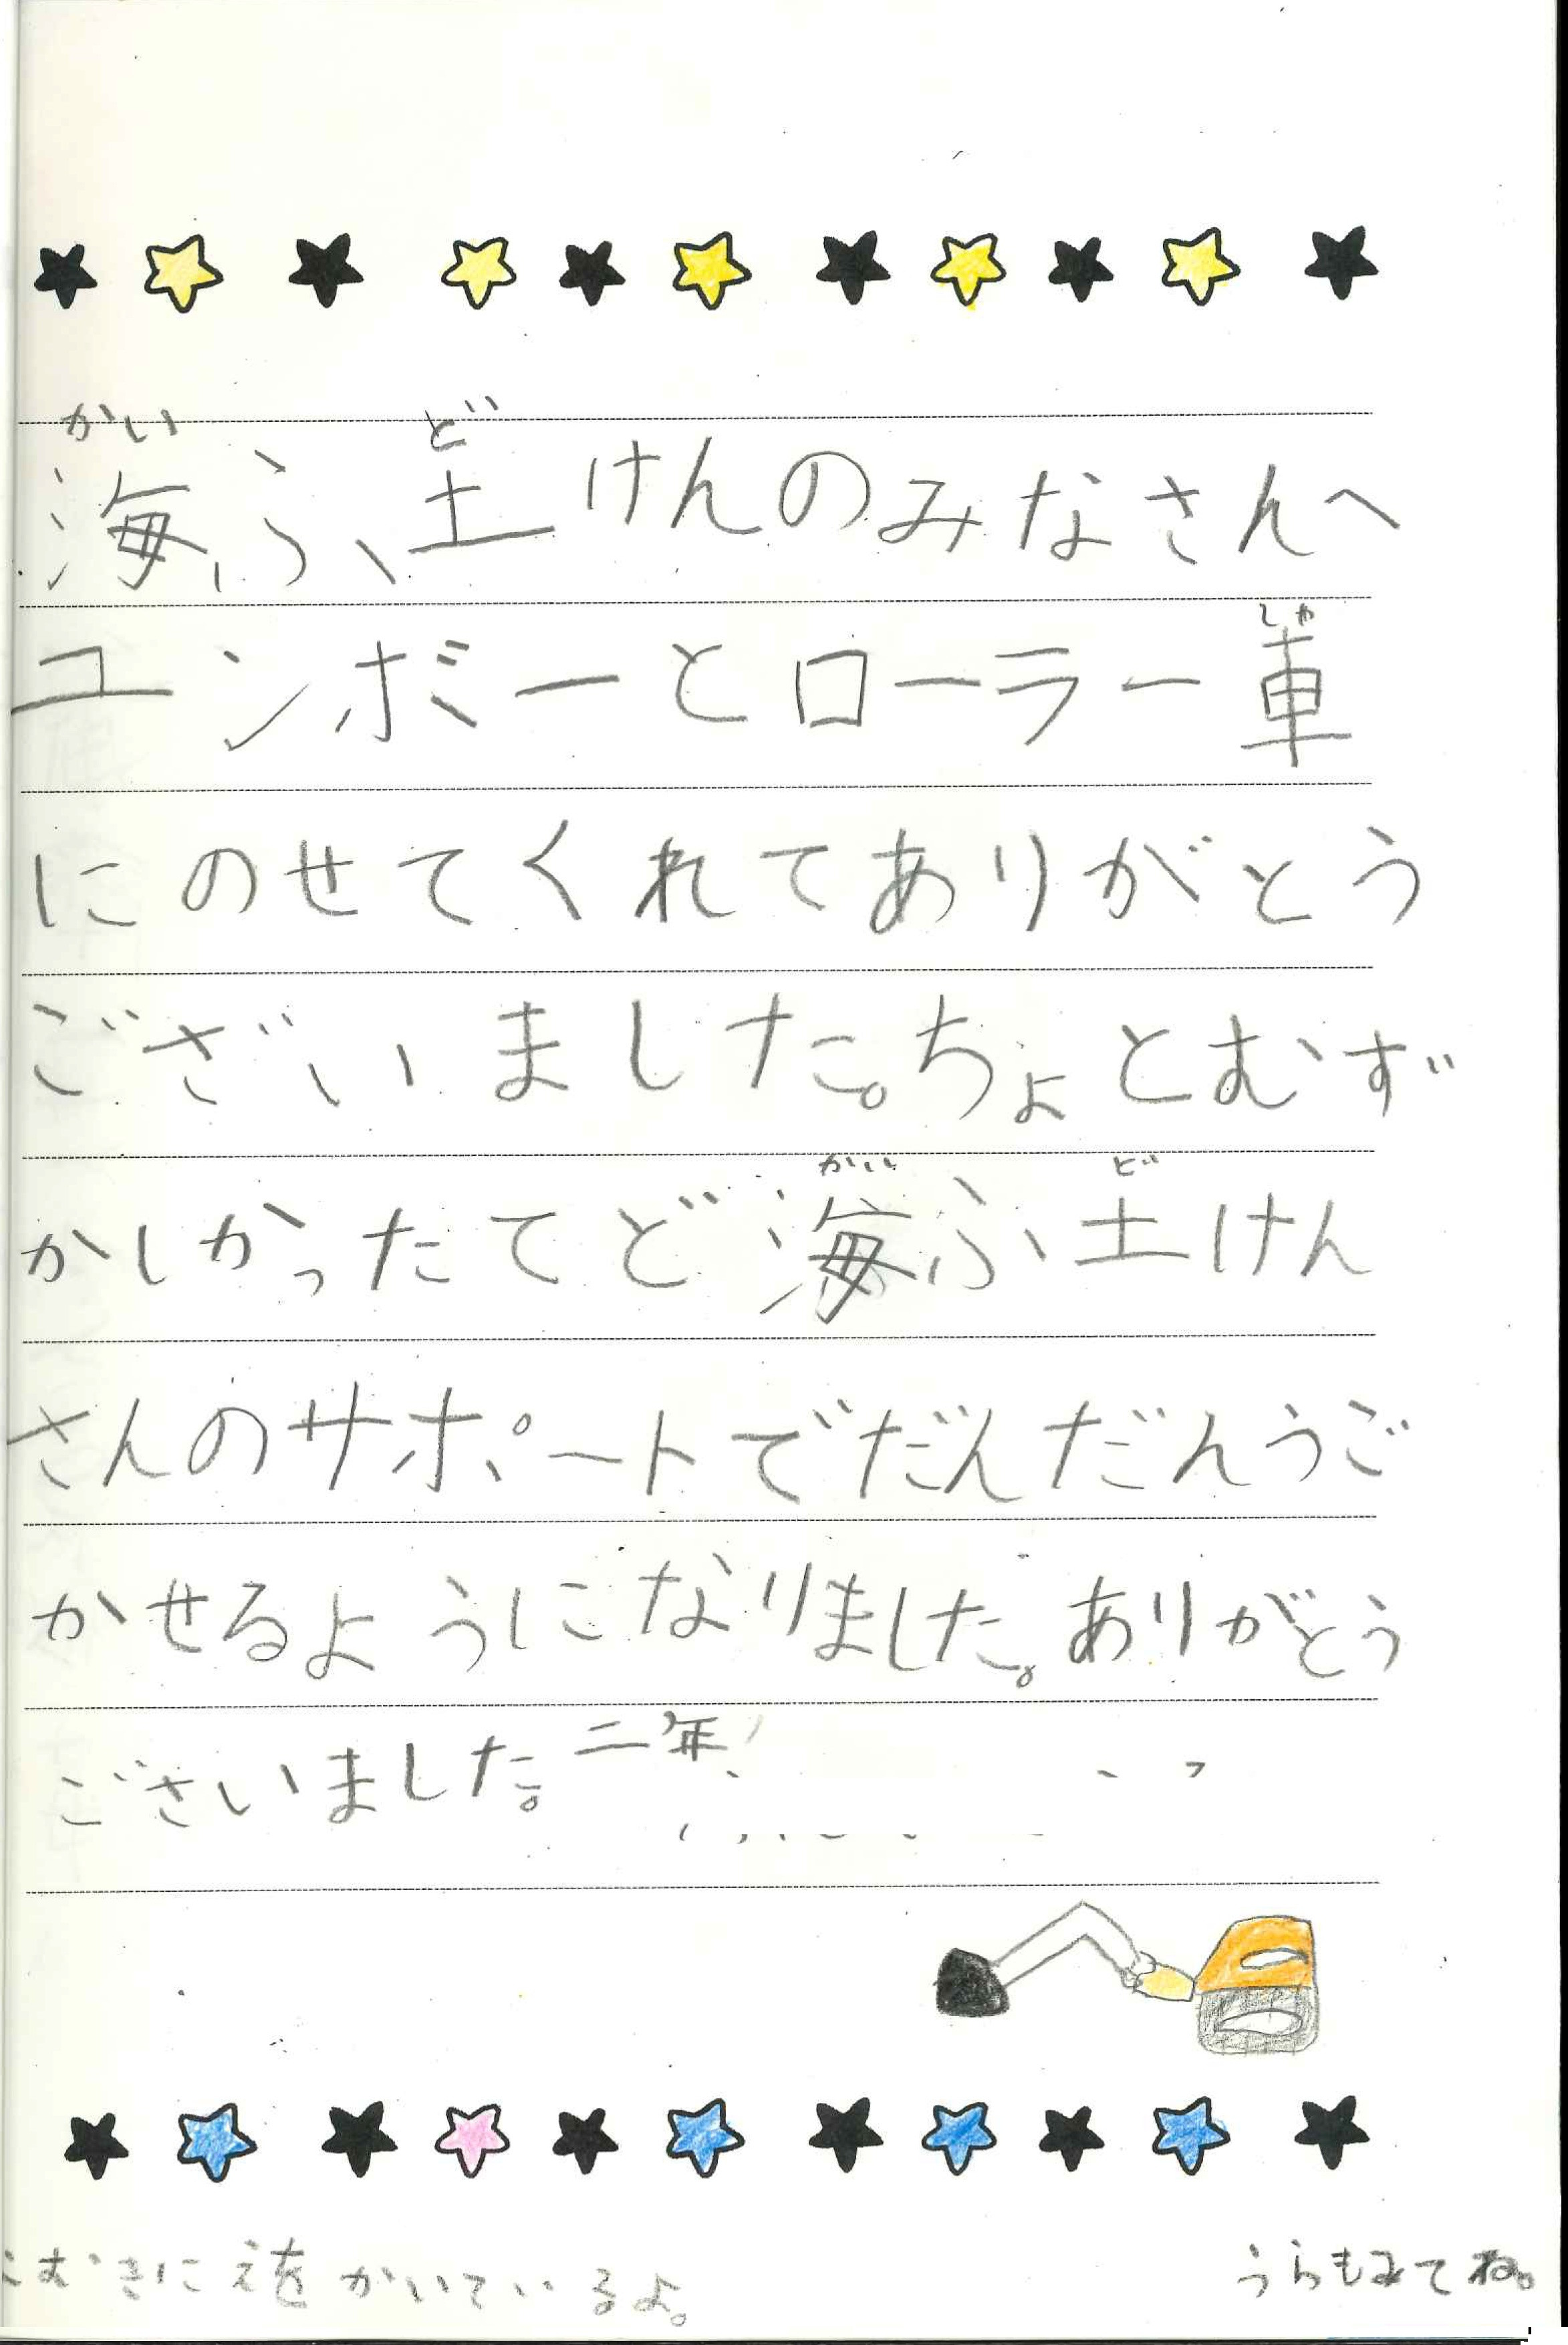 かい ど
海ふ土けんのみなさんへ
しゃ
ユンボーとローラー車
にのせてくれてありがとう
ございました。ちょとむず
がい ど
かしかったてど海ふ土けん
さんのサポートでだんだんうご
かせるようになりました。ありがとう
ごさいました。二年
こむきにえをかいているよ。
うらもみてね。